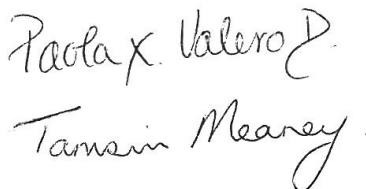 Paola X. Valero D.
Tamsin Meaney.